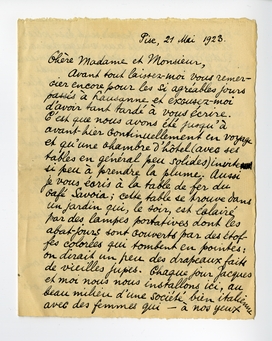 Pise, 21 Mai 1923.
Chère Madame et Monsieur,
Avant tout laissez-moi vous remer-
cier encore pour les si agréables jours
passés à Lausanne et excusez-moi
d'avoir tant tardé à vous écrire.
C'est que nous avons été jusqu'à
avant hier continuellement en voyage
et qu'une chambre d'hôtel (avec ses
tables en général peu solides) invite
si peu à prendre la plume. Aussi
je vous écris à la table de fer du
Café Savoia; cette table se trouve dans
un jardin qui, le soir, est éclairé
par des lampes portatives dont les
abat-jours sont couverts par des étof-
fes colorées qui tombent en pointes;
on dirait un peu des drapeaux faits
de vieilles jupes. Chaque jour Jacques
et moi nous nous installons ici, au
beau milieu d'une Société bien italienne
avec des femmes qui — à nos yeux